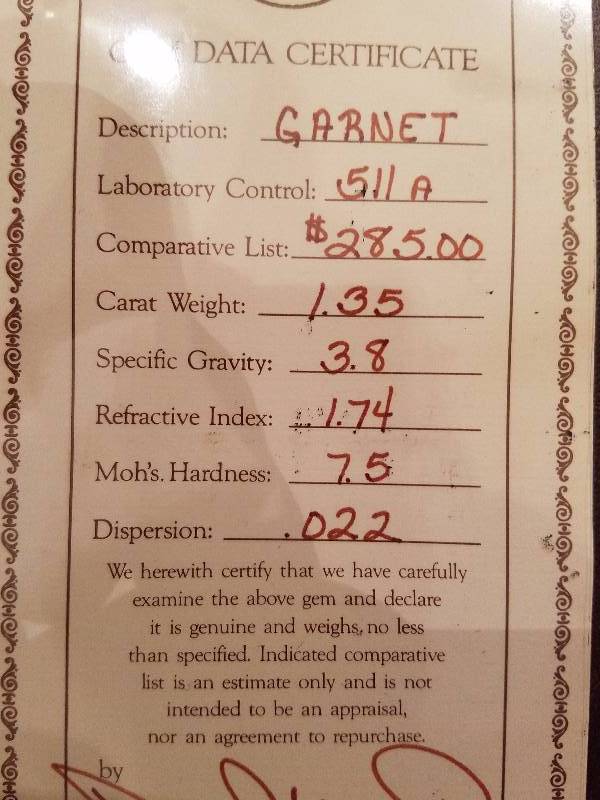 DATA CERTIFICATE
Description: GARNET
Laboratory Control: 511 A
Comparative List: $285.00
Carat Weight: 1.35
Specific Gravity: 3.8
Refractive Index: 1.74
Moh's. Hardness: 7.5
Dispersion: .022
We herewith certify that we have carefully
examine the above gem and declare
it is genuine and weighs, no less
than specified. Indicated comparative
list is an estimate only and is not
intended to be an appraisal,
nor an agreement to repurchase.
by